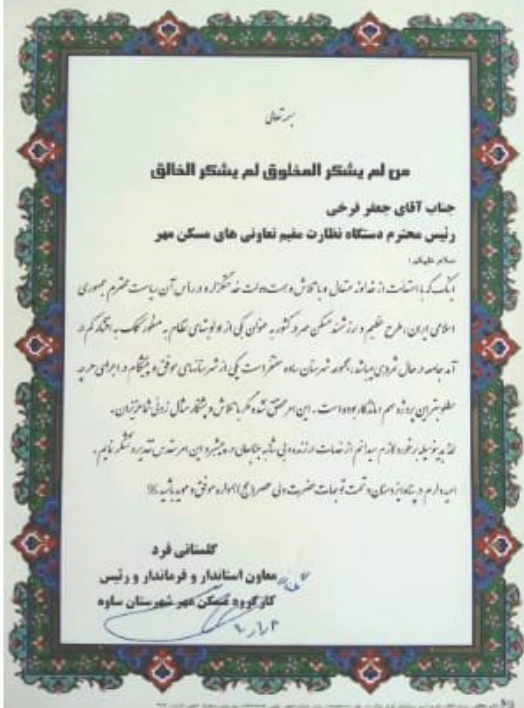 بسمه تعالی
من لم یشکر المخلوق لم یشکر الخالق
جناب آقای جعفر فرخی
رئیس محترم دستگاه نظارت مقیم تعاونی های مسکن مهر
سلام علیکم؛
اینک که با استعانت از خداوند متعال و با تلاش و همت دولت خدمتگزار و در رأس آن ریاست محترم جمهوری
اسلامی ایران، طرح عظیم و ارزشمند مسکن مهر در کشور به عنوان یکی از اولویتهای نظام به منظور کمک به اقشار کم در
آمد جامعه در حال شروع میباشد، مجموعه شهرستان ساوه مفتخر است یکی از شهرستانهای موفق و پیشگام در اجرای هر چه
مطلوبتر این پروژه مهم و ماندگار بوده است. این امر محقق نشده مگر با تلاش و پشتکار مثال زدنی شما عزیزان.
لذا بدینوسیله بر خود لازم میدانم از خدمات ارزنده و بی شائبه جنابعالی در پیشبرد این امر مقدس تقدیر و تشکر نمایم.
امیدوارم در پناه ایزد منان و تحت توجهات حضرت ولی عصر (عج) همواره موفق و موید باشید.
گلستانی فرد
معاون استاندار و فرماندار و رئیس
کارگروه مسکن مهر شهرستان ساوه